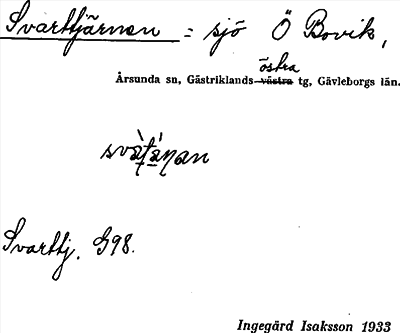 Svarttjärnen = sjö Ö Bovik,
östra
Årsunda sn, Gästriklands västra tg, Gävleborgs län.
Svarttj. G98.
Ingegärd Isaksson 1933